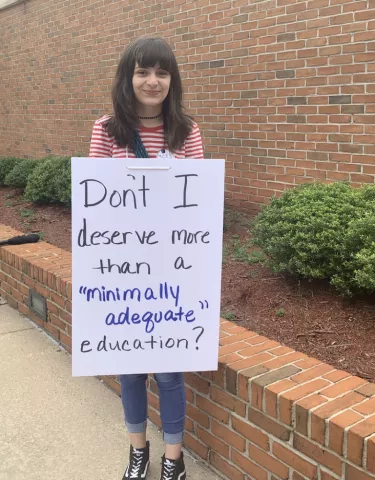 Don't I
deserve more
than a
"minimally
adequate"
education?